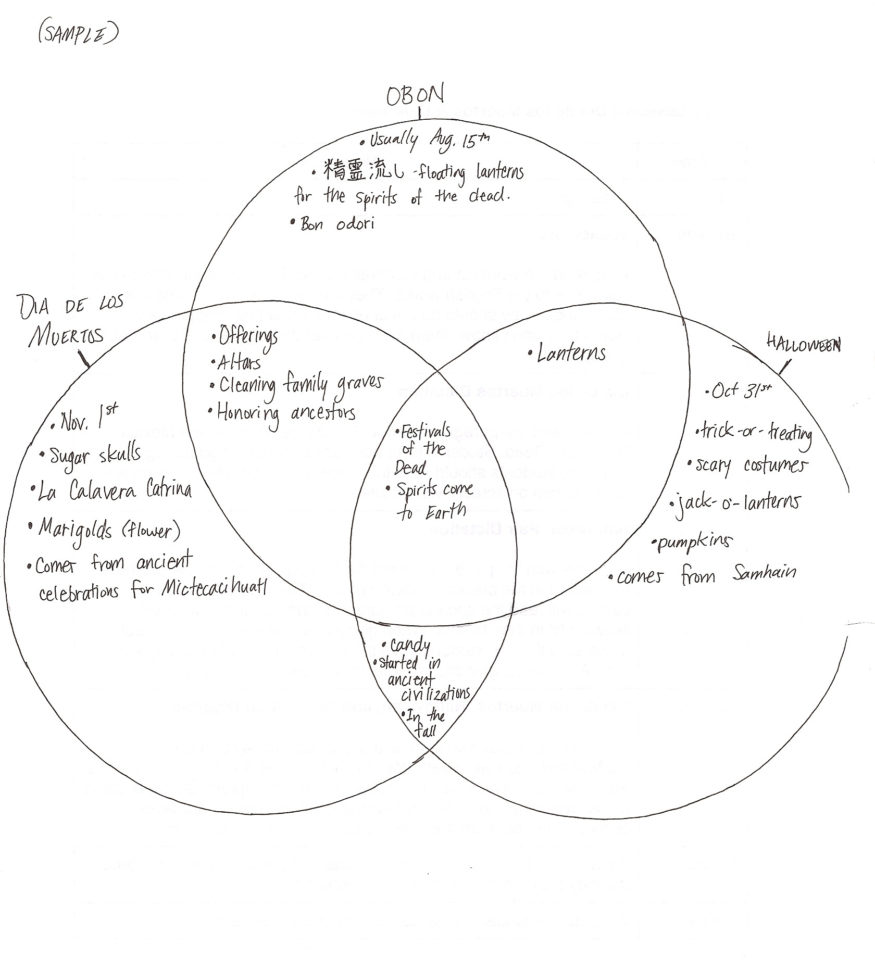 (SAMPLE)
OBON
• Usually Aug. 15th
• 精霊流し - floating lanterns
for the spirits of the dead.
• Bon odori
DIA DE LOS
MUERTOS
• Nov. 1st
• Sugar skulls
• La Calavera Catrina
• Marigolds (flower)
• Comes from ancient
celebrations for Mictecacihuatl
• Offerings
• Altars
• Cleaning family graves
• Honoring ancestors
• Lanterns
HALLOWEEN
• Oct 31st
• trick-or-treating
• scary costumes
• jack-o'-lanterns
• pumpkins
• comes from Samhain
• Festivals
of the
Dead
• Spirits come
to Earth
• Candy
• Started in
ancient
civilizations
• In the
fall